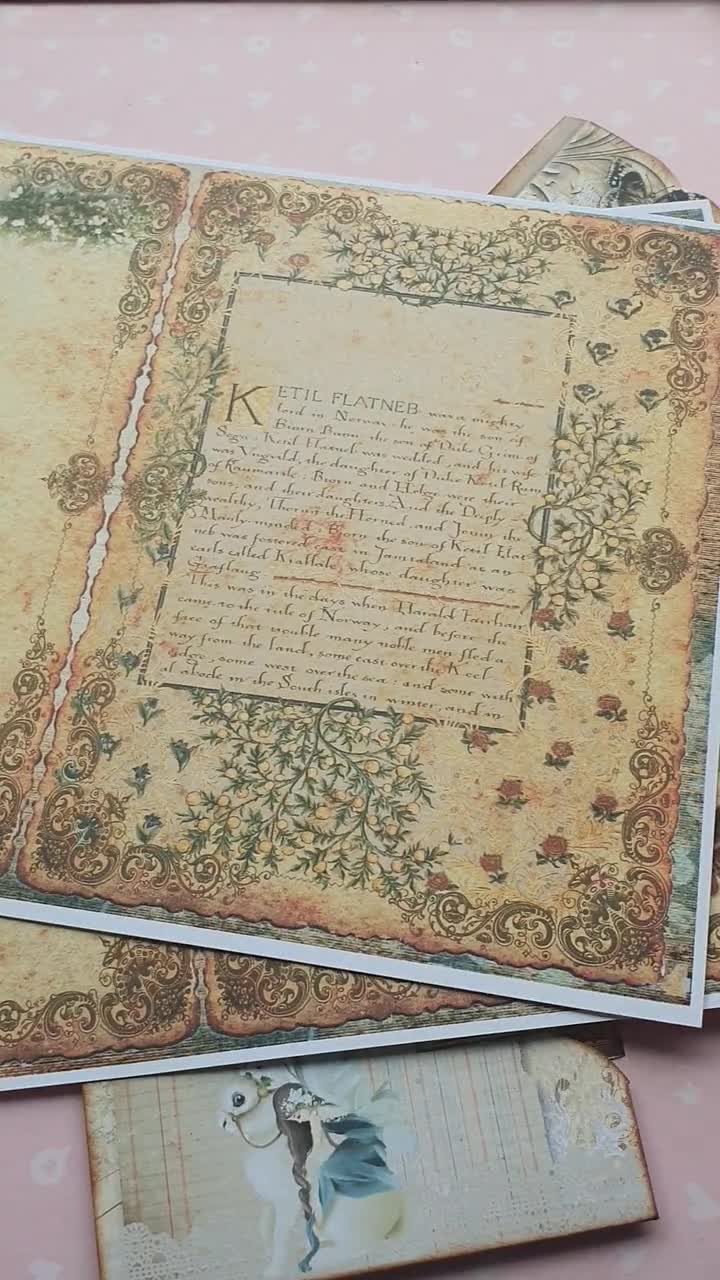 KETIL FLATNEB was a mighty
lord in Norway, he was the son of
Biorn Buni, the son of Duke Grim of
Sogn: Ketil Flatneb was wedded, and his wife
was Yngvild, the daughter of Duke Ketil Run
of Raumarik: Biorn and Helgi were their
sons, and their daughters Aud the Deeply
wealthy, Thorun the Horned, and Jorun the
Manly-minded. Biorn the son of Ketil Flat
neb was fostered east in Jamtaland at an
earls called Kiallak, whose daughter was
Giaflaug.
This was in the days when Harald Fairhair
came to the rule of Norway, and before the
face of that trouble many noble men fled a
way from the land, some east over the Keel
edge, some west over the sea: and some with
al abode in the South isles in winter, and in